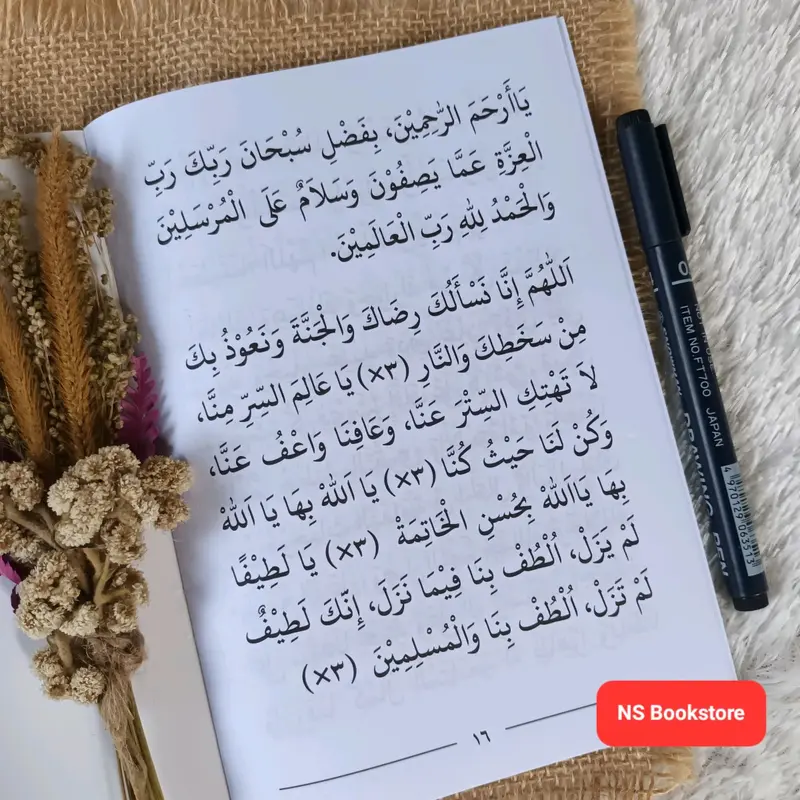 يَاأَرْحَمَ الرّٰحِمِيْنَ، بِفَضْلِ سُبْحَانَ رَبِّكَ رَبِّ
الْعِزَّةِ عَمَّا يَصِفُوْنَ وَسَلاَمٌ عَلَى الْمُرْسَلِيْنَ
وَالْحَمْدُ لِلّٰهِ رَبِّ الْعَالَمِيْنَ.
اَللّٰهُمَّ إِنَّا نَسْأَلُكَ رِضَاكَ وَالْجَنَّةَ وَنَعُوْذُ بِكَ
مِنْ سَخَطِكَ وَالنَّارِ (×٣) يَا عَالِمَ السِّرِّ مِنَّا،
لاَ تَهْتِكِ السِّتْرَ عَنَّا، وَعَافِنَا وَاعْفُ عَنَّا،
وَكُنْ لَنَا حَيْثُ كُنَّا (×٣) يَا اَللّٰهْ بِهَا يَا اَللّٰهْ
بِهَا يَااَللّٰهْ بِحُسْنِ الْخَاتِمَةْ (×٣) يَا لَطِيْفًا
لَمْ يَزَلْ، اُلْطُفْ بِنَا فِيْمَا نَزَلَ، إِنَّكَ لَطِيْفٌ
لَمْ تَزَلْ، اُلْطُفْ بِنَا وَالْمُسْلِمِيْنَ (×٣)
١٦
ITEM NO.FT700 JAPAN
DRAWING PEN
4970129 063513
NS Bookstore